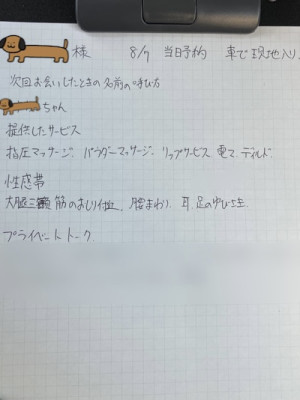 様 8/9 当日予約 車で現地入り
次回お会いしたときの名前の呼び方
ちゃん
提供したサービス
指圧マッサージ、パウダーマッサージ、リップサービス 電マ、ディルド
性感帯
筋 腰まわり 耳 足のゆび
プライベートトーク